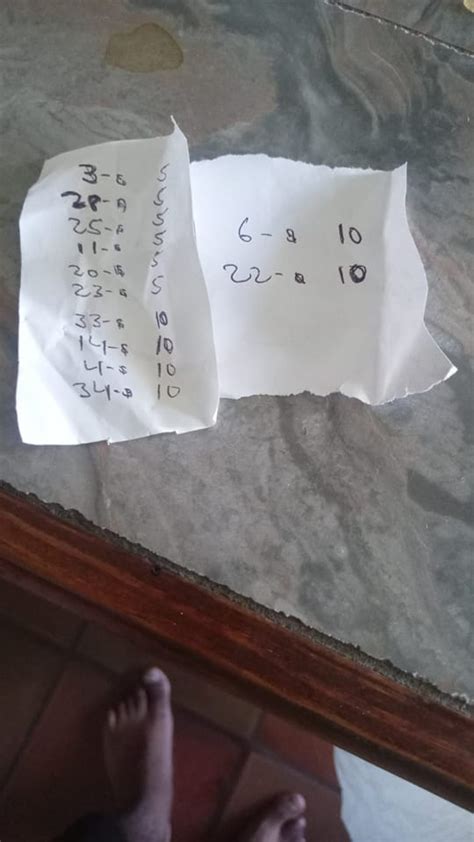 3-$ 5
28-$ 5
25-$ 5
11-$ 5
20-$ 5
23-$ 5
33-$ 10
14-$ 10
4-$ 10
34-$ 10
6-$ 10
22-$ 10